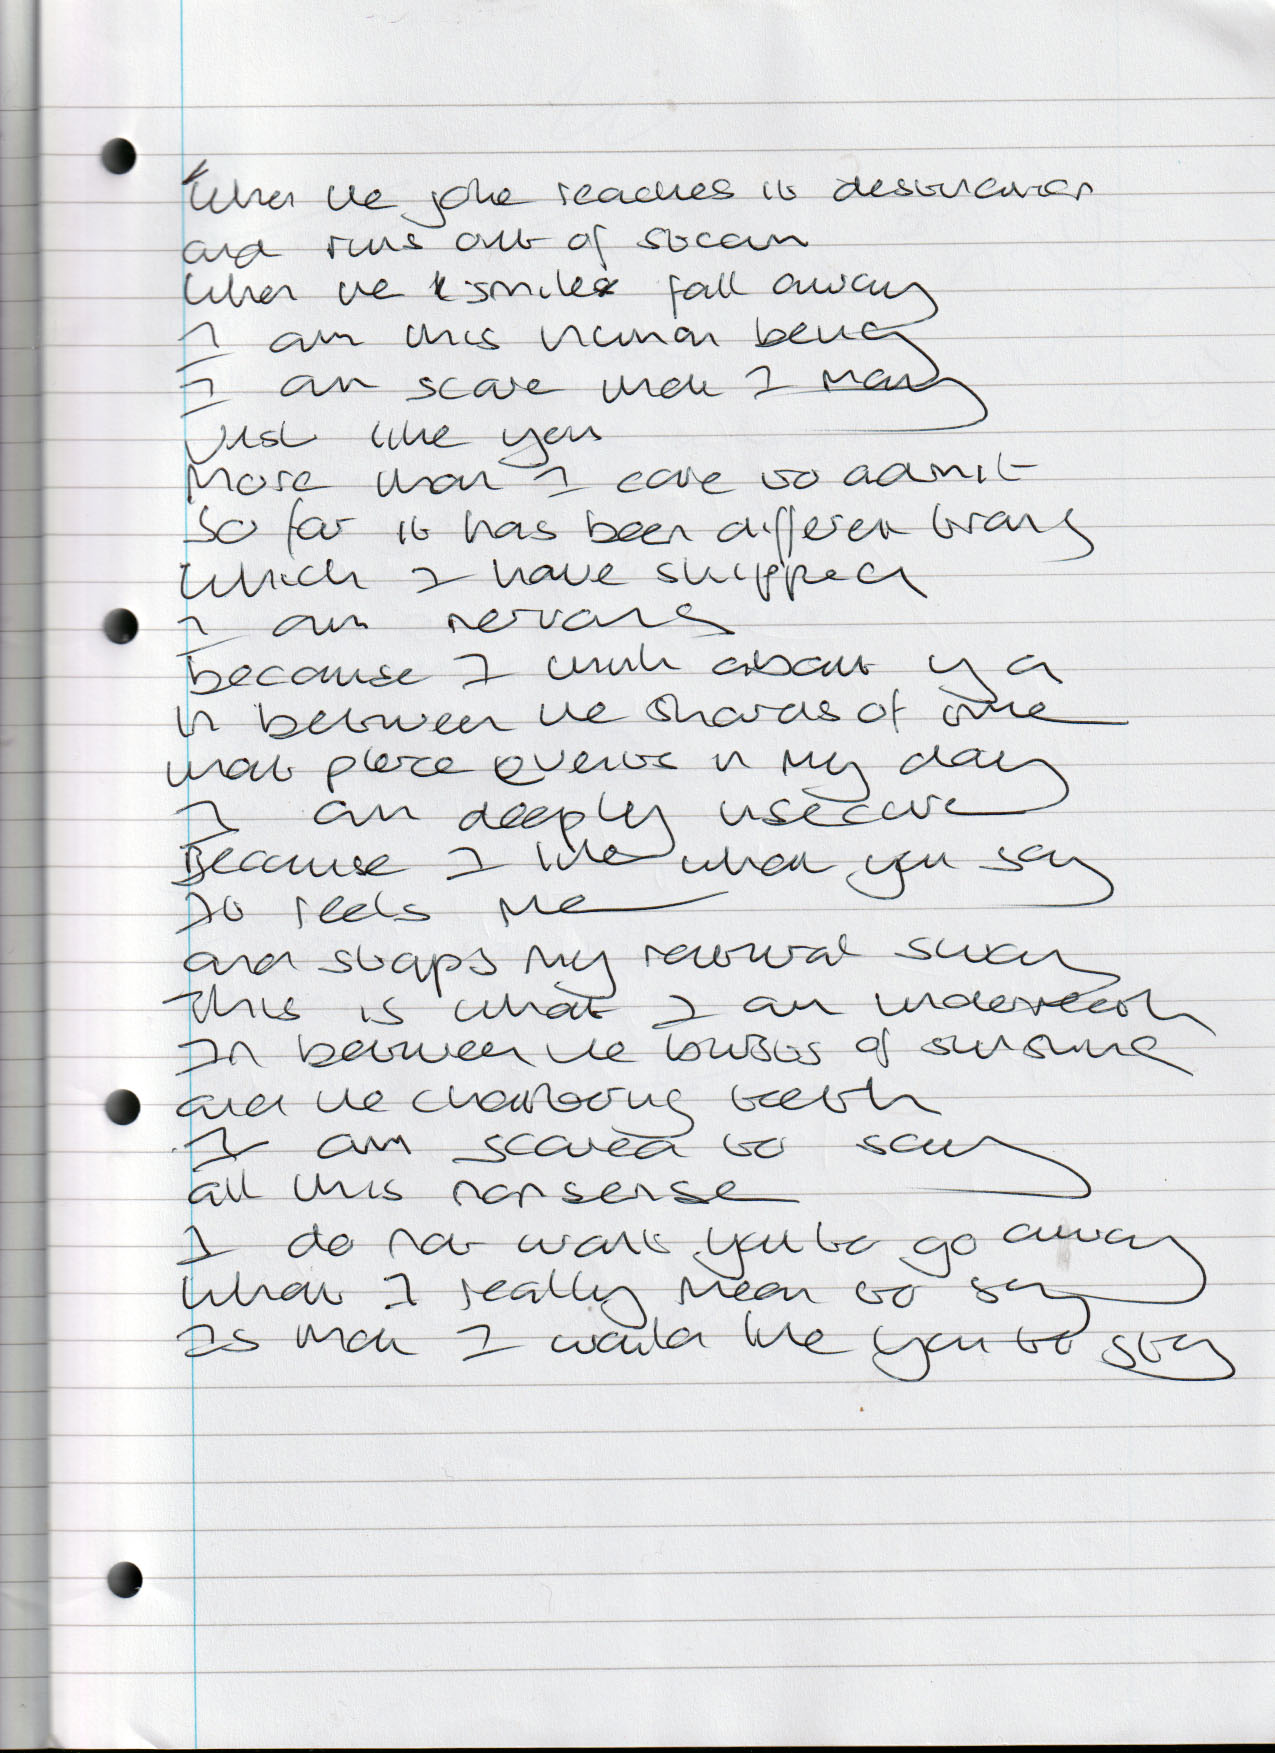 When the joke reaches it destination
and runs out of steam
When the smiles fall away
I am this human being
I am scare that I many
Just like you
More than I care to admit
So far it has been different
Which I have skipped
I am nervous
because I think about
in between the shards of time
that pierce events in my day
I am deeply insecure
Because I like what you say
It feels me
and stops my rational
This is what I am underneath
In between the bursts of sunshine
and the chattering teeth
I am scared to say
all this nonsense
I do not want you to go away
What I really mean to say
Is that I would like you to stay